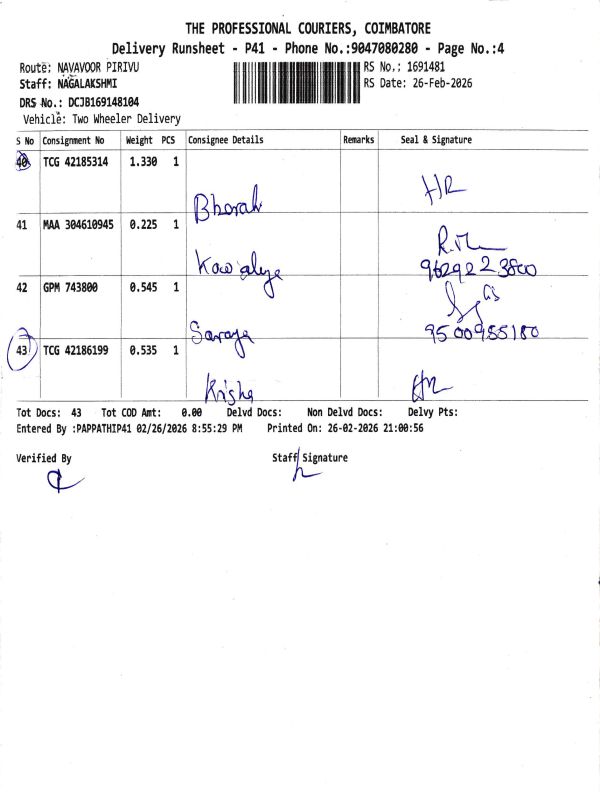 THE PROFESSIONAL COURIERS, COIMBATORE
Delivery Runsheet - P41 - Phone No.:9047080280 - Page No.:4
Route: NAVAVOOR PIRIVU
RS No.: 1691481
Staff: NAGALAKSHMI
RS Date: 26-Feb-2026
DRS No.: DCJB169148104
Vehicle: Two Wheeler Delivery
S No Consignment No Weight PCS Consignee Details Remarks Seal & Signature
40 TCG 42185314 1.330 1
HR
41 MAA 304610945 0.225 1
42 GPM 743800 0.545 1
Saraya
9500955180
43 TCG 42186199 0.535 1
Krisha
Tot Docs: 43 Tot COD Amt: 0.00 Delvd Docs: Non Delvd Docs: Delvy Pts:
Entered By :PAPPATHIP41 02/26/2026 8:55:29 PM Printed On: 26-02-2026 21:00:56
Verified By Staff Signature